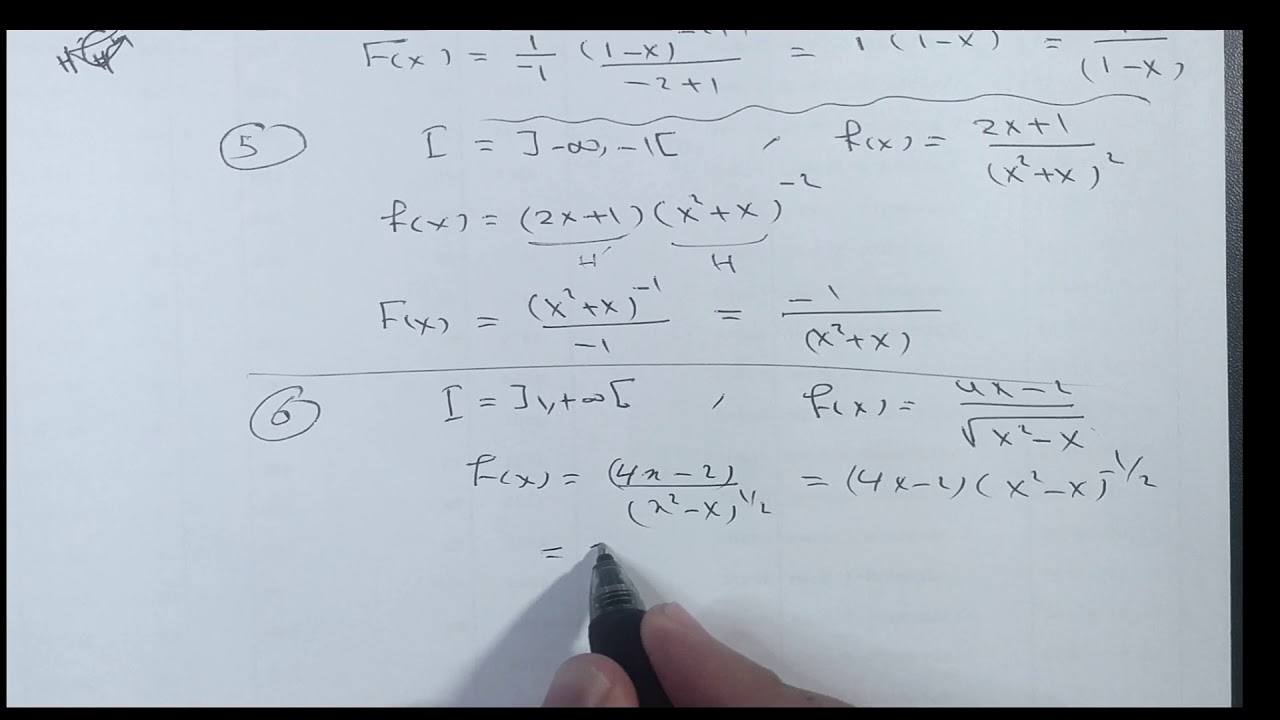 F(x) = 1/-1 (1-x) / -2+1 = 1 (1-x) = / (1-x)
5 I = ]-∞,-1[ , f(x) = 2x+1 / (x²+x)²
f(x) = (2x+1)(x²+x)⁻²
H' H
F(x) = (x²+x)⁻¹ / -1 = -1 / (x²+x)
6 I = ]1,+∞[ , f(x) = 4x-2 / √x²-x
f(x) = (4x-2) / (x²-x)^1/2 = (4x-2)(x²-x)^-1/2
=